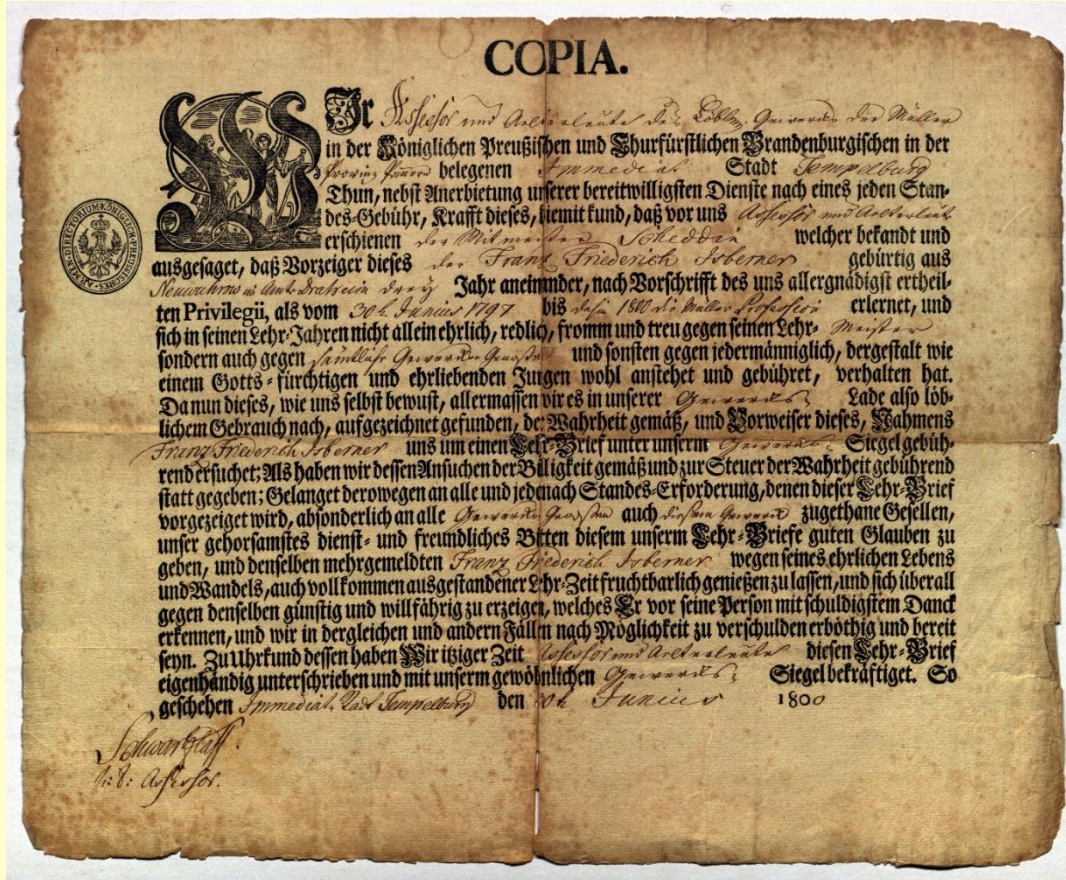 COPIA.
WJr Assessor und Aelterleute des Löbln. Gewercks der Müller
in der Königlichen Preußischen und Churfürstlichen Brandenburgischen in der
Provinz belegenen Immediat Stadt Tempelburg
Thun, nebst Anerbietung unserer bereitwilligsten Dienste nach eines jeden Stan-
des-Gebühr, Krafft dieses, hiemit kund, daß vor uns Assessor und Aelterleut
erschienen der Mitmeister Scheddin welcher bekandt und
ausgesaget, daß Vorzeiger dieses der Franz Friederich Isberner gebürtig aus
Amt drey Jahr aneinander, nach Vorschrifft des uns allergnädigst ertheil-
ten Privilegii, als vom 30t. Junius 1797 bis dahin 1800 die Müller Profession erlernet, und
sich in seinen Lehr-Jahren nicht allein ehrlich, redlich, fromm und treu gegen seinen Lehr- Meister
sondern auch gegen sämtliche Gewercks-Genossen und sonsten gegen jedermänniglich, dergestalt wie
einem Gotts-fürchtigen und ehrliebenden Jungen wohl anstehet und gebühret, verhalten hat.
Da nun dieses, wie uns selbst bewust, allermassen wir es in unserer Gewercks- Lade also löb-
lichem Gebrauch nach, aufgezeichnet gefunden, der Wahrheit gemäß, und Vorweiser dieses, Nahmens
Franz Friederich Isberner uns um einen Lehr-Brief unter unserm Gewercks- Siegel gebüh-
rend ersuchet; Als haben wir dessen Ansuchen der Billigkeit gemäß und zur Steuer der Wahrheit gebührend
statt gegeben; Gelanget derowegen an alle und jede nach Standes-Erforderung, denen dieser Lehr-Brief
vorgezeiget wird, absonderlich an alle Gewercks-Genossen auch diesem Gewerck zugethane Gesellen,
unser gehorsamstes dienst- und freundliches Bitten diesem unserm Lehr-Briefe guten Glauben zu
geben, und denselben mehrgemeldten Franz Friederich Isberner wegen seines ehrlichen Lebens
und Wandels, auch vollkommen ausgestandener Lehr-Zeit fruchtbarlich geniessen zu lassen, und sich überall
gegen denselben günstig und willfährig zu erzeigen, welches Er vor seine Person mit schuldigstem Danck
erkennen, und wir in dergleichen und andern Fällen nach Möglichkeit zu verschulden erböthig und bereit
seyn. Zu Uhrkund dessen haben Wir itziger Zeit Assessor und Aelterleute diesen Lehr-Brief
eigenhändig unterschrieben und mit unserm gewöhnlichen Gewercks- Siegel bekräftiget. So
geschehen Immediat Stadt Tempelburg den 30t. Junius 1800
Assessor.